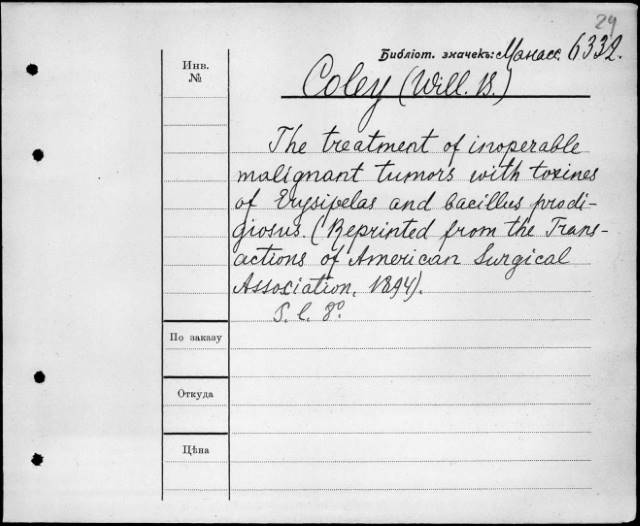 29
Библіот. значекъ: Манасс. 6332.
Инв.
№
Coley (Will. B.)
The treatment of inoperable
malignant tumors with toxines
of Erysipelas and bacillus prodi-
giosus. (Reprinted from the Trans-
actions of American Surgical
Association, 1894).
S. l. 8º.
По заказу
Откуда
Цѣна